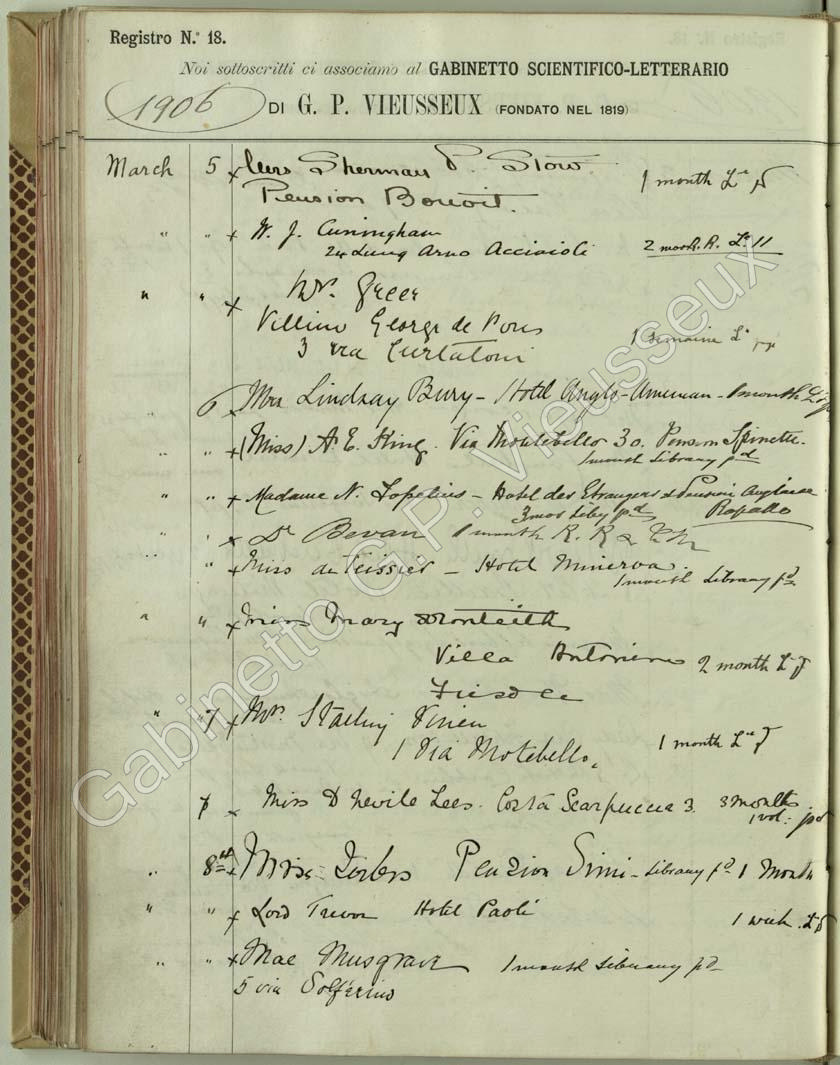 Registro N.° 18.
Noi sottoscritti ci associamo al GABINETTO SCIENTIFICO-LETTERARIO
1906 DI G. P. VIEUSSEUX (FONDATO NEL 1819)
March 5 x Mrs Sherman P. Stow
Pension Benoit. 1 month
" " x W. J. Cuningham
24 Lung Arno Acciaioli 2 mos R. R. L. 11
" " x Mr. Greer
Villino George de Pons
3 via Curtatoni 1 semaine
" 6 Mrs Lindsay Bury - Hotel Anglo-American - 1 month
" " x (Miss) A. E. King. Via Montebello 30. Pension
1 month Library pd
" " x Madame N. - Hotel des Etrangers & Pension Anglaise
3 mos Liby pd Rapallo
" " x Dr Bevan 1 month R. R &
" x Miss de Teissier - Hotel Minerva.
1 month Library pd
" " x Miss Mary Monteith
Villa 2 month
Fiesole
" " 7 x Mr.
1 Via Motebello. 1 month
7 x Miss D Nevile Lees. Costa Scarpuccia 3. 3 months
1 vol: pd
" 8th x Miss Pension Simi - Library pd 1 Month
" " x Lord Trevor Hotel Paoli
1 week
" " x Mae Musgrave 1 month Library pd
5 via Solferino
Gabinetto G.P. Vieusseux